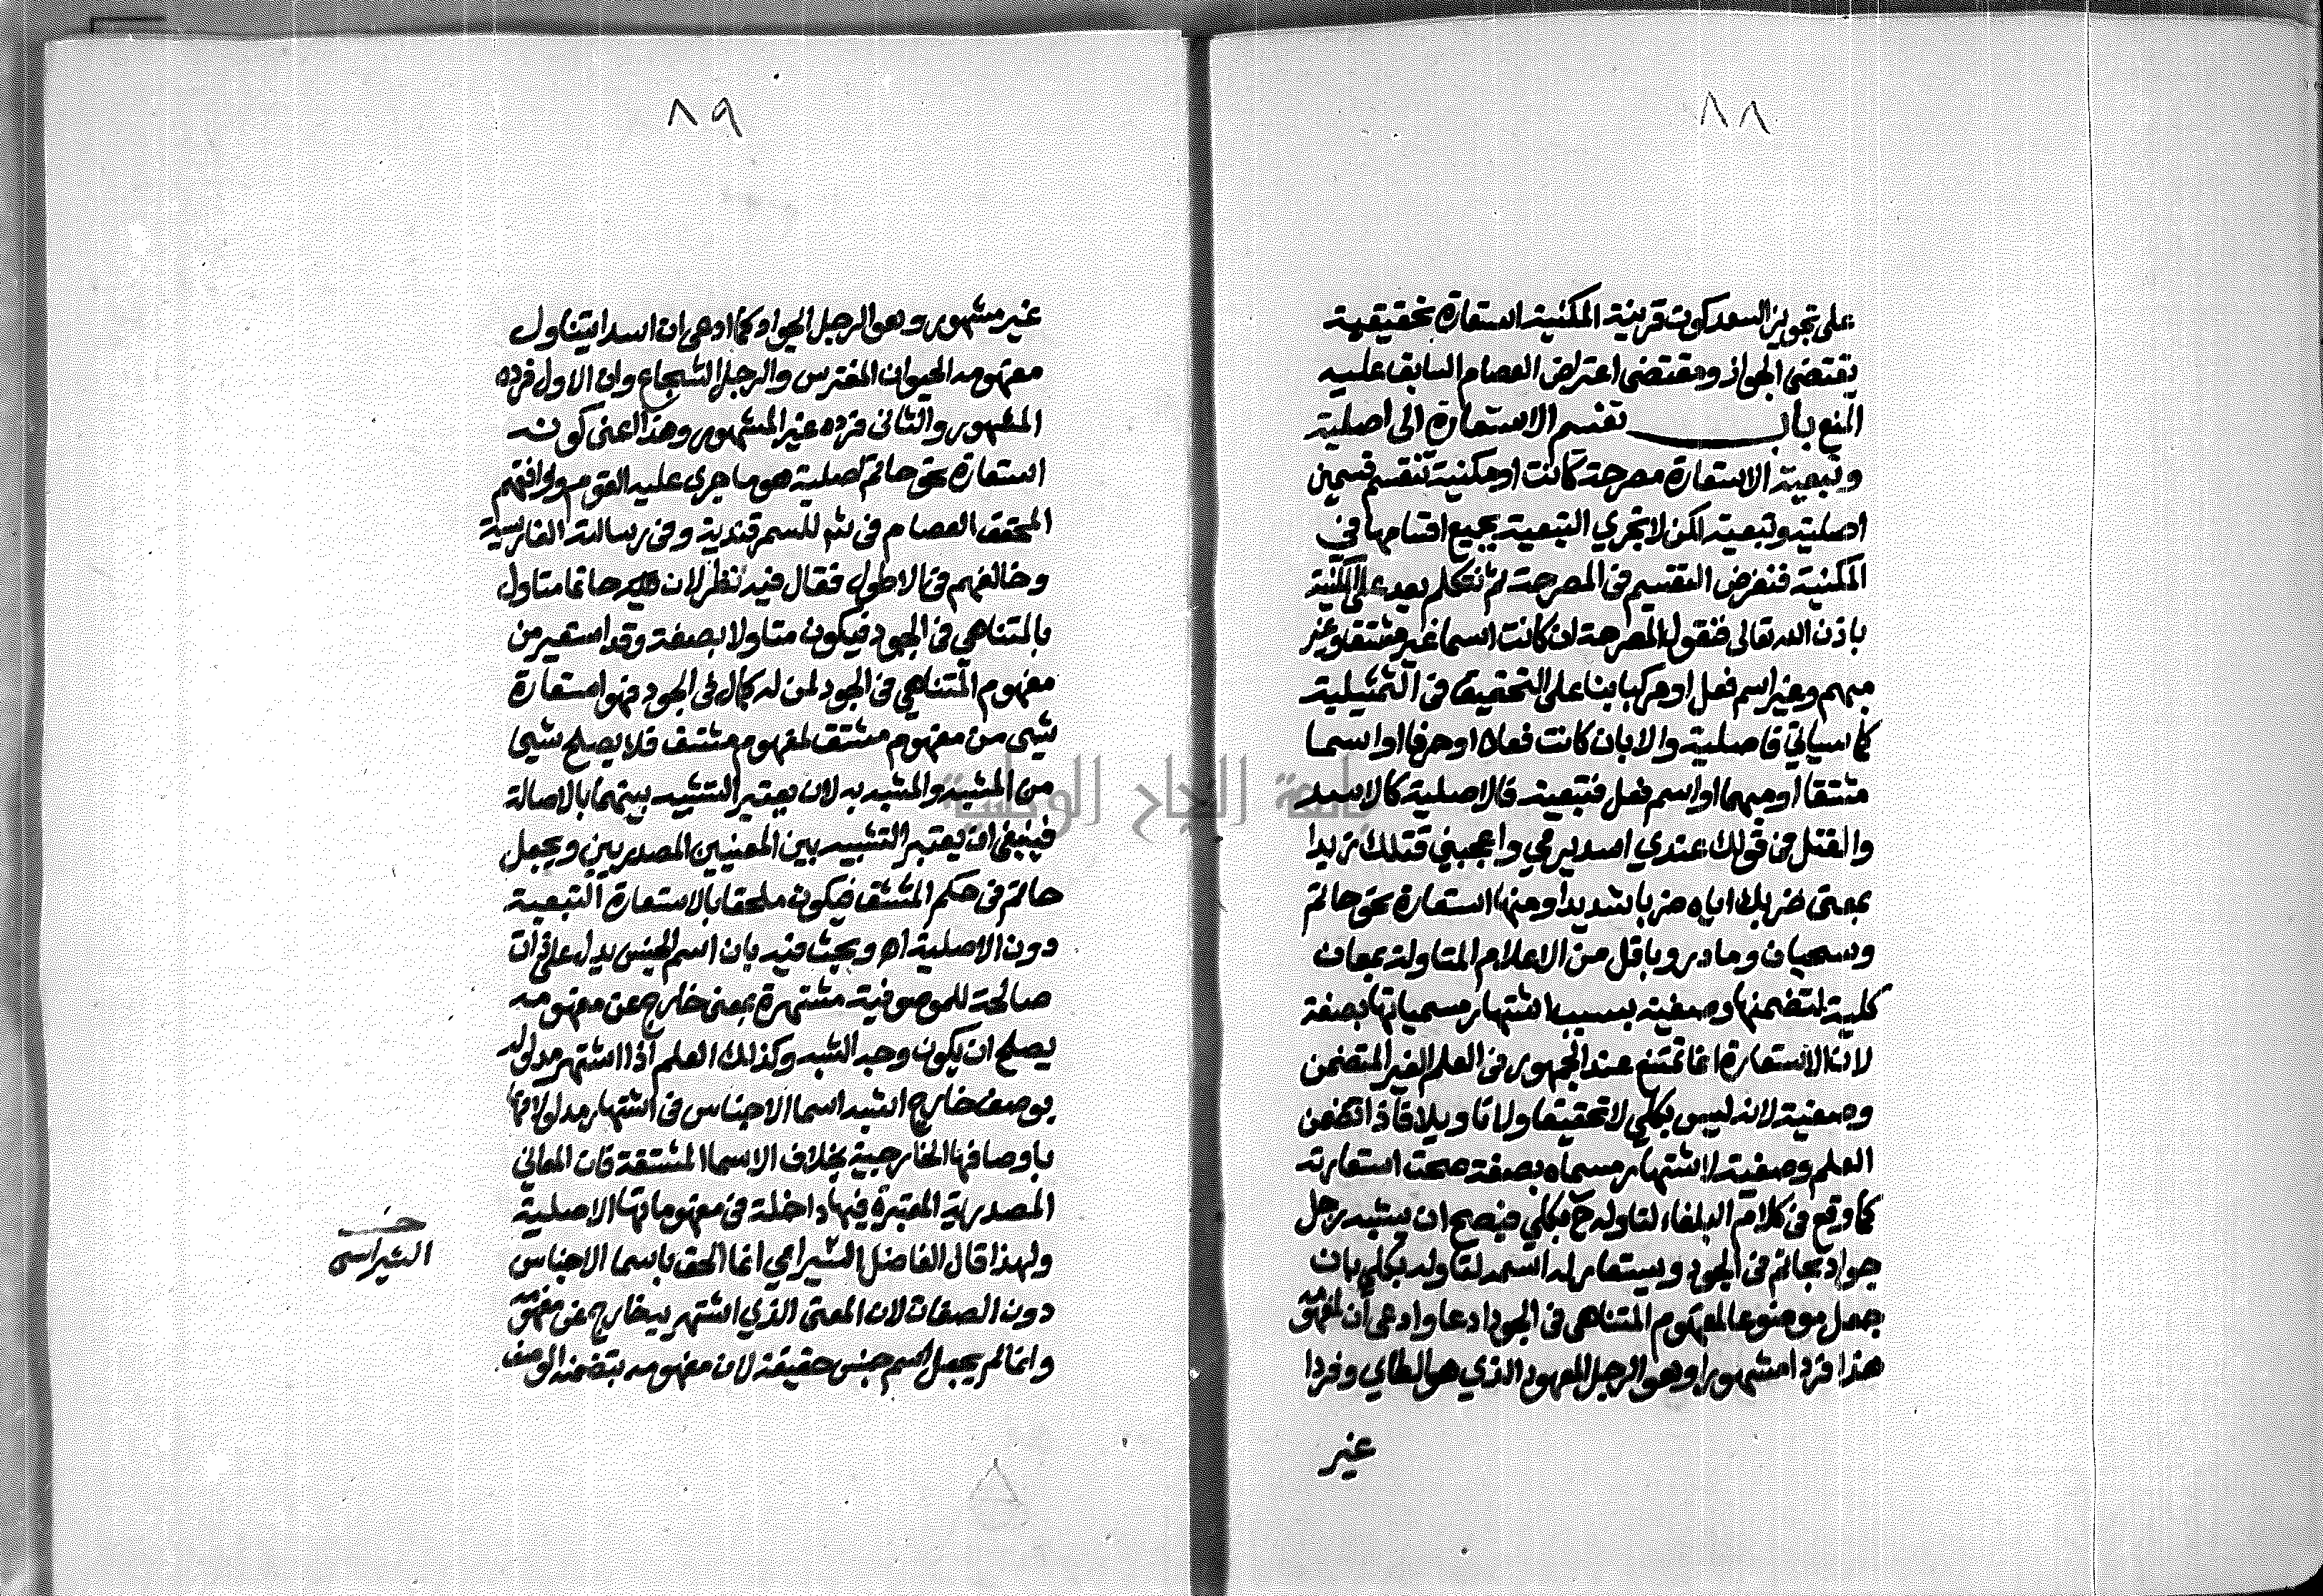 ٨٨
على تجويز السعد كون قرينة المكنية استعارة تحقيقية
يقتضى الجواز ومقتضى اعتراض العصام السابق عليه
المنع بأن تقسم الاستعارة الى اصلية
وتبعية الاستعارة مصرحة كانت او مكنية تنقسم قسمين
اصلية وتبعية لكن لا تجري التبعية بجميع اقسامها فى
المكنية فنفرض التقسيم فى المصرحة ثم نتكلم بعد على المكنية
باذن الله تعالى فنقول المصرحة ان كانت اسما غير مشتق وغير
مبهم وغير اسم فعل او مركبا بنا على التحقيق فى التمثيلية
كما سياتي فاصلية والا بان كانت فعلا او حرفا او اسما
مشتقا او مبهما او اسم فعل فتبعية فالاصلية كالاسد
والقتل فى قولك عندي اسد يرمي واعجبني قتلك زيدا
بمعنى ضربك اياه ضربا شديدا ومنها استعارة نحو حاتم
وسحبان ومادر وباقل من الاعلام المتاولة بمعان
كلية لتضمنها وصفية بسبب اشتهار مسمياتها بصفة
لان الاستعارة انما تمتنع عند الجمهور فى العلم الغير المتضمن
وصفية لانه ليس بكلي لا تحقيقا ولا تاويلا فاذا تضمن
العلم وصفية لاشتهار مسماه بصفة صحت استعارته
كما وقع فى كلام البلغاء لتاوله ح بكلي فيصح ان يشبه رجل
جواد بحاتم فى الجود ويستعار له اسمه لتاوله بكلي بان
جعل موضوعا لمفهوم المتناهى فى الجود ادعا وادعى ان لمفهومه
هذا فردا مشهورا وهو الرجل المعهود الذي هو الطاي وفردا
غير
٨٩
غير مشهور وهو الرجل الجواد كما ادعى ان اسدا يتناول
مفهومه الحيوان المفترس والرجل الشجاع وان الاول فرده
المشهور والثانى فرده غير المشهور وهذا اعنى كونه
استعارة نحو حاتم اصلية هو ما جرى عليه القوم ووافقهم
المحقق العصام فى شر للسمرقندية وفى رسالته الفارسية
وخالفهم فى الاطول فقال فيه نظر لان حاتما متاول
بالمتناهي فى الجود فيكون متاولا بصفة وقد استعير من
مفهوم المتناهي فى الجود لمن له كمال فى الجود فهو استعارة
شيى من مفهوم مشتق لمفهوم مشتق فلا يصلح شيى
من المشبه والمشبه به لان يعتبر التشبيه بينهما بالاصالة
فينبغى ان يعتبر التشبيه بين المعنيين المصدريين ويجعل
حاتم فى حكم المشتق فيكون ملحقا بالاستعارة التبعية
دون الاصلية اه وبحث فيه بان اسم الجنس يدل على ذات
صالحة للموصوفية مشتهرة بمعنى خارج عن مفهومه
يصلح ان يكون وجه الشبه وكذلك العلم اذا اشتهر مدلوله
بوصف خارج اشبه اسما الاجناس فى اشتهار مدلولاتها
باوصافها الخارجية بخلاف الاسما المشتقة فان المعاني
المصدرية المعتبرة فيها داخلة فى مفهوماتها الاصلية
ولهذا قال الفاضل الشيرامي انما الحق باسما الاجناس
دون الصفات لان المعنى الذي اشتهر به خارج عن مفهومه
وانما لم يجعل اسم جنس حقيقة لان مفهومه بتضمنه الوصف